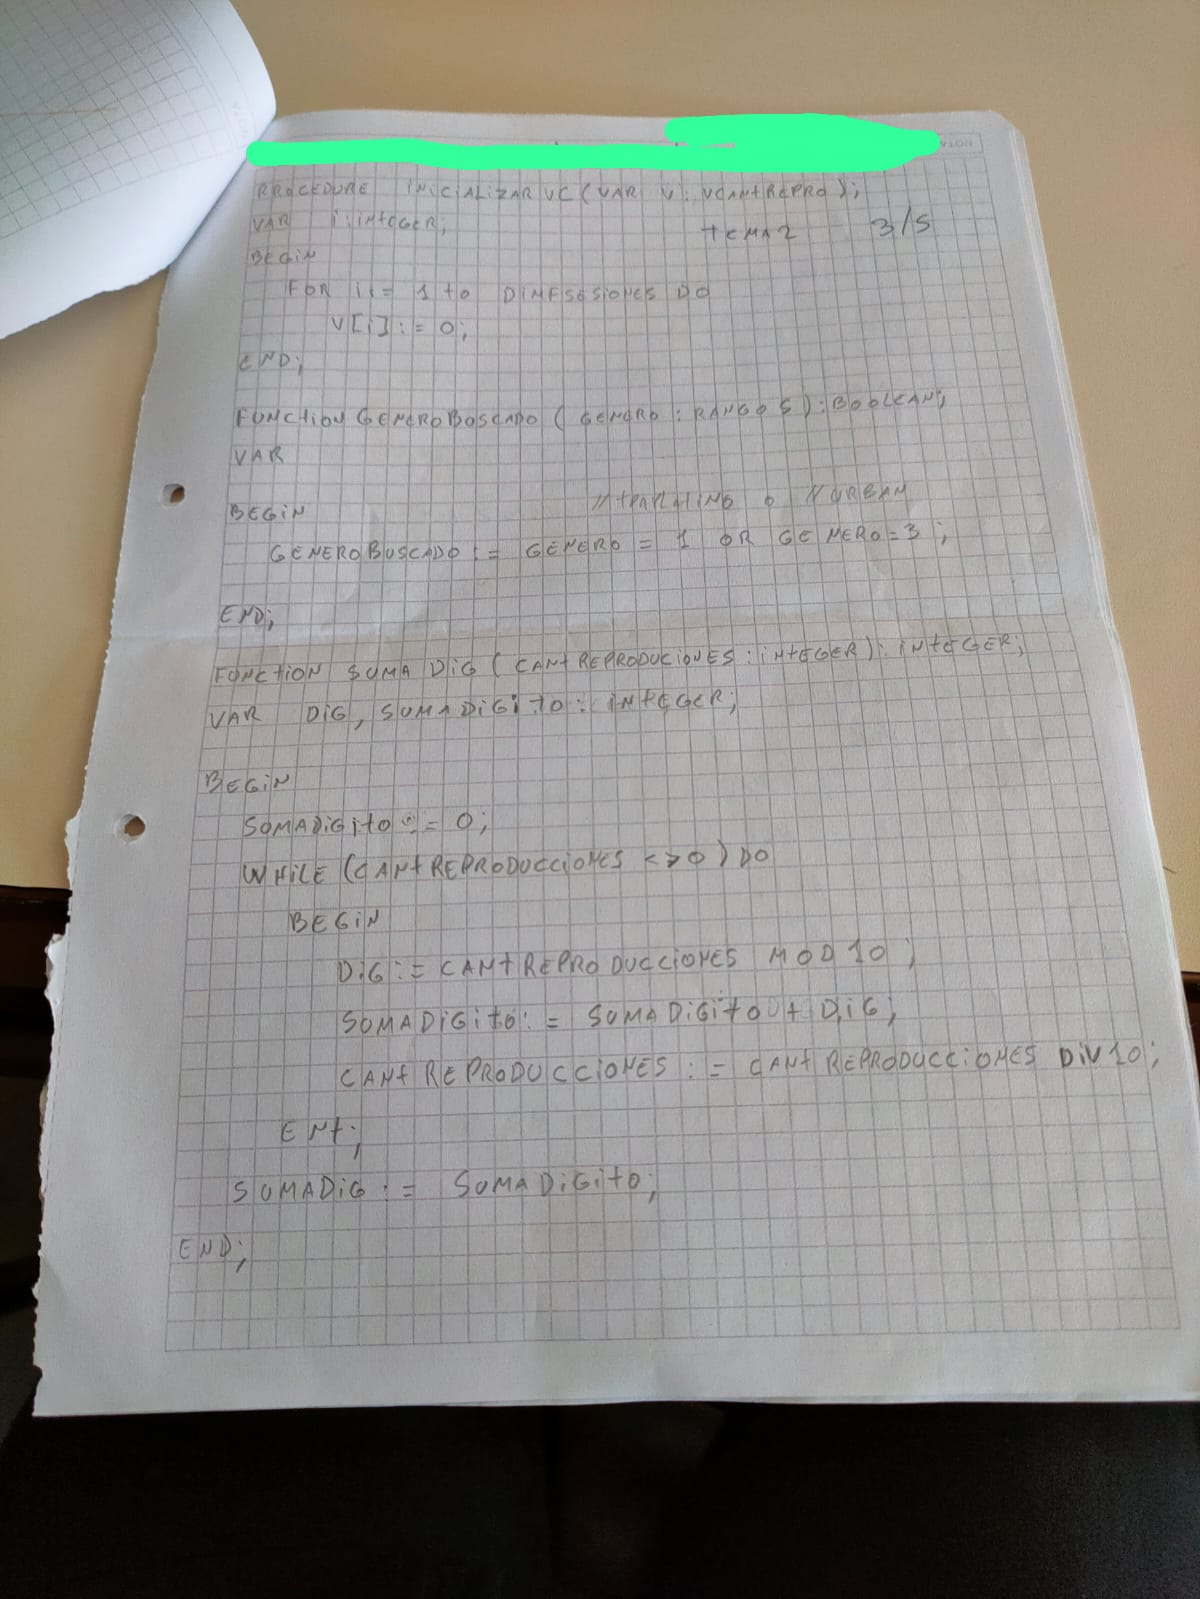 PROCEDURE INICIALIZAR VC (VAR V: VCANTREPRO);
VAR i: INTEGER;
TEMA 2 3/5
BEGIN
FOR i:= 1 to DIMFSESIONES DO
V[i]:= 0;
END;
FUNCTION GENEROBOSCADO ( GENERO : RANGO5 ): BOOLEAN;
VAR
BEGIN // TRAP LATINO O // URBAN
GENEROBUSCADO := GENERO = 1 OR GENERO = 3 ;
END;
FUNCTION SUMA DIG ( CANTREPRODUCIONES : INTEGER): INTEGER;
VAR DIG, SUMADIGITO : INTEGER;
BEGIN
SUMADIGITO := 0;
WHILE (CANTREPRODUCCIONES <> 0) DO
BEGIN
DIG := CANTREPRODUCCIONES MOD 10 ;
SUMADIGITO := SUMADIGITO + DIG;
CANTREPRODUCCIONES := CANTREPRODUCCIONES DIV 10;
ENt;
SUMADIG := SUMADIGITO;
END;